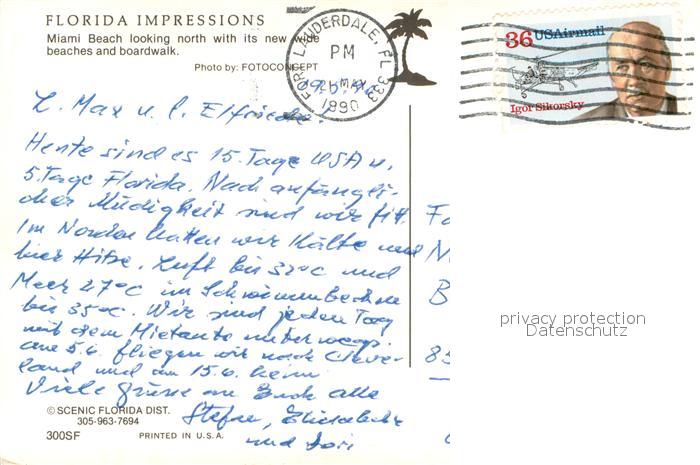 FLORIDA IMPRESSIONS
Miami Beach looking north with its new wide
beaches and boardwalk.
Photo by: FOTOCONCEPT
FORT LAUDERDALE, FL 333
PM
MAY
1990
36 USAirmail
Igor Sikorsky
L. Max u. l. Elfriede.
Heute sind es 15. Tage USA u.
5. Tage Florida. Nach anfängli-
cher Müdigkeit sind wir fit.
Im Norden hatten wir Kälte und
hier Hitze. Luft bis 32°C und
Meer 27°C im Schwimmbecken
bis 35°C. Wir sind jeden Tag
mit dem Mietauto unterwegs.
am 5.6. fliegen wir nach Cleve-
land und am 15.6. heim
Viele Grüsse an Euch alle
Stefan, Elisabeth
und
Fa
N
B
85
privacy protection
Datenschutz
© SCENIC FLORIDA DIST.
305-963-7694
300SF
PRINTED IN U.S.A.